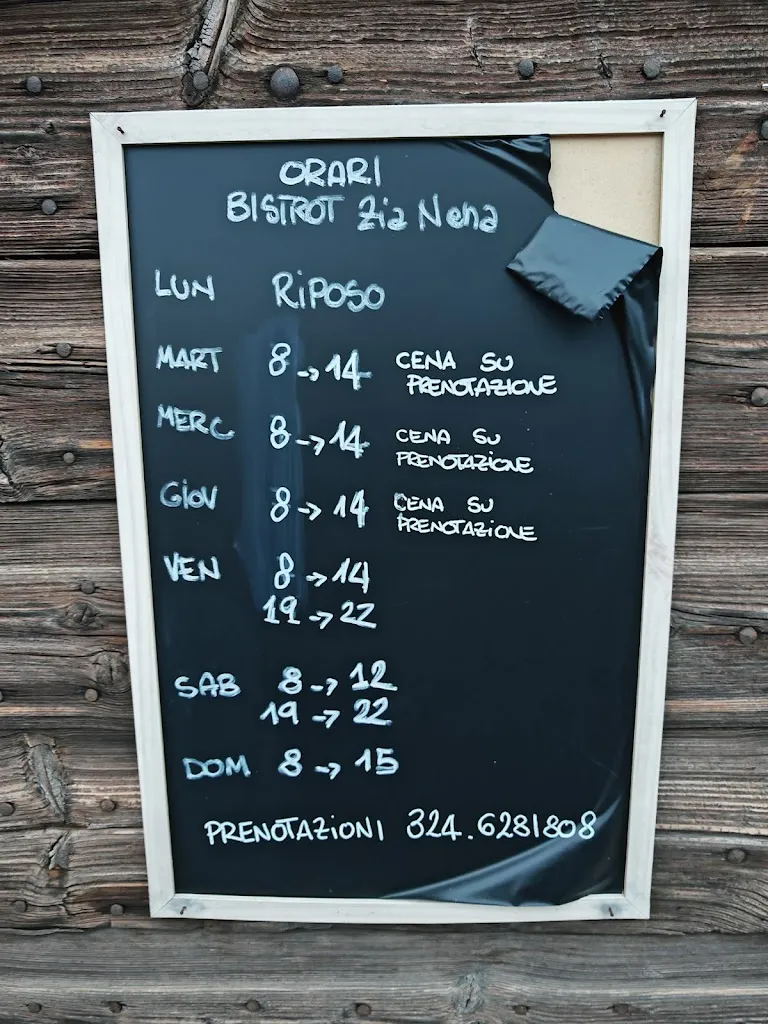 ORARI
BISTROT Zia Nena
LUN RiPOSO
MART 8 → 14 CENA SU
PRENOTAZIONE
MERC 8 → 14 CENA SU
PRENOTAZiONE
GiOV 8 → 14 CENA SU
PRENOTAZiONE
VEN 8 → 14
19 → 22
SAB 8 → 12
19 → 22
DOM 8 → 15
PRENOTAZiONI 324.6281808